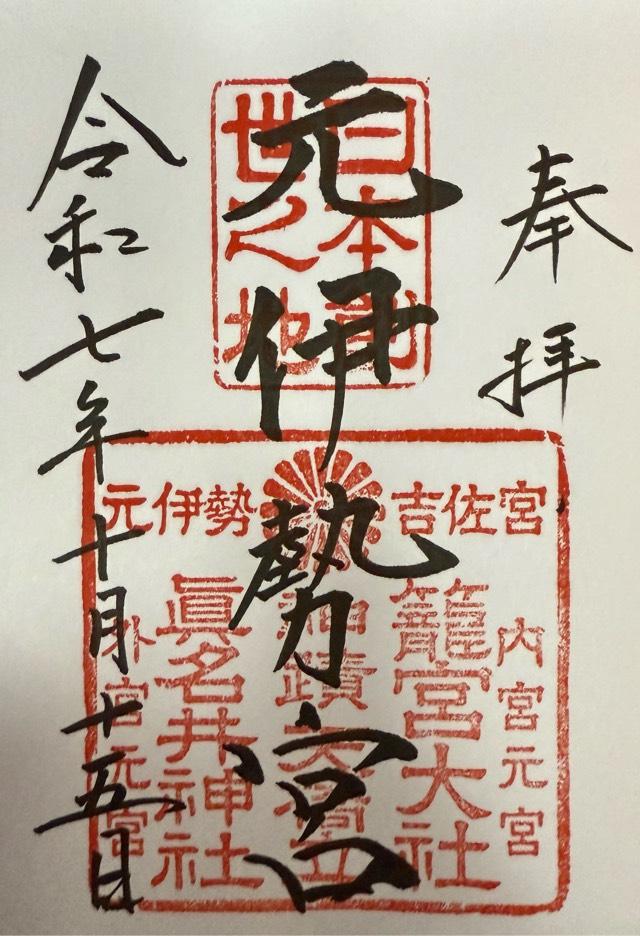 奉拝
元伊勢宮
令和七年十月十五日
日本最
世之地
吉佐宮
元伊勢
内宮元宮
籠宮大社
神蹟
眞名井神社
外宮元宮